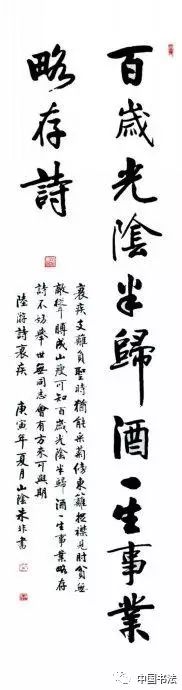 百歲光陰半歸酒一生事業
略存詩
衰疾支離負聖時猶能采菊傍東籬捉襟見肘貧無
敵聳膊成山瘦可知百歲光陰半歸酒一生事業略存
詩不妨舉世無同志會有方來可與期
陸游詩衰疾 庚寅年夏月山陰朱非書
中国书法